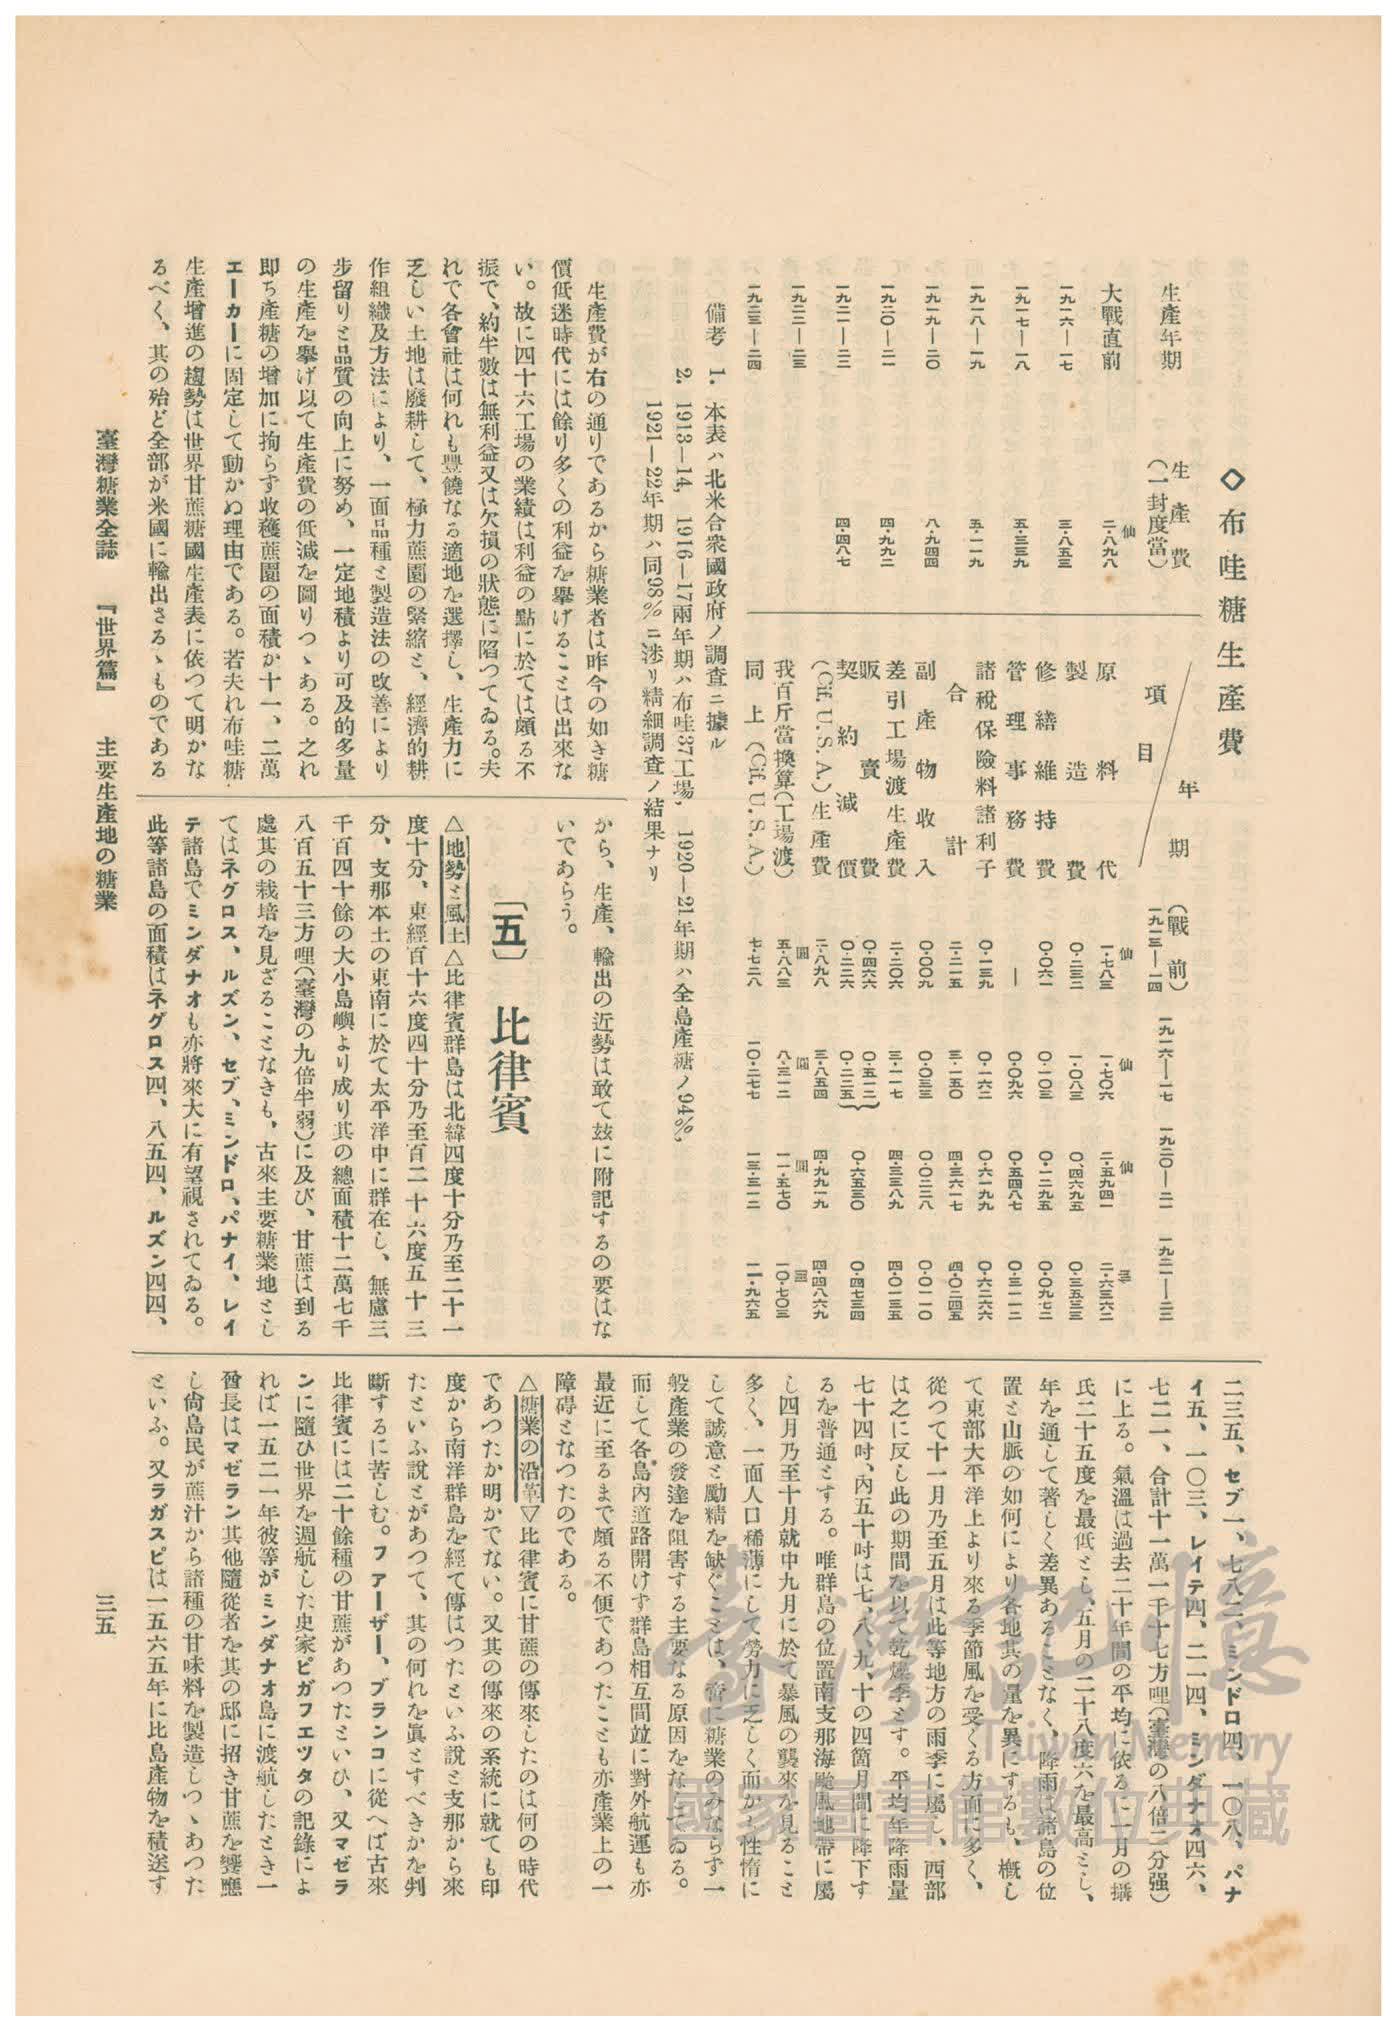 ◇布哇糖生産費
生産年期
生産費
(一封度當)
大戰直前 二・八九八仙
一九一六―一七 三・八五三
一九一七―一八 五・三三九
一九一八―一九 五・一一九
一九一九―二〇 八・九四四
一九二〇―二一 四・九九二
一九二一―二二 四・四八七
一九二二―二三
一九二三―二四
年期
項目
(戰前)一九一三―一四 一九一六―一七 一九二〇―二一 一九二一―二二
原料代 一・七八三仙 一・七〇六仙 二・五九四一仙 二・六三六二
製造費 〇・二三二 一・〇八三 〇・四六九五 〇・三五三三
修繕維持費 〇・〇六一 〇・一〇三 〇・一二九五 〇・〇九七二
管理事務費 ― 〇・〇九六 〇・五四八七 〇・三一一二
諸稅保險料諸利子 〇・一三九 〇・一六二 〇・六一九九 〇・六二六六
合計 二・二一五 三・一五〇 四・三六一七 四・〇二四五
副産物收入 〇・〇〇九 〇・〇三三 〇・〇二二八 〇・〇一一〇
差引工場渡生産費 二・二〇六 三・一一七 四・三三八九 四・〇一三五
販賣費 〇・四六六 〇・五一二 〇・六五三〇 〇・四七三四
契約減價 〇・二二六 〇・二二五
(Cif. U. S. A.)生産費 二・八九八 三・八五四 四・九九一九 四・四八六九
我百斤當換算(工場渡) 五・八八三圓 八・三一二圓 一一・五七〇圓 一〇・七〇三圓
同上(Cif. U. S. A.) 七・七二八 一〇・二七七 一三・三一二 一一・九六五
備考 1. 本表ハ北米合衆國政府ノ調査ニ據ル
2. 1913―14, 1916―17兩年期ハ布哇37工場, 1920―21年期ハ全島産糖ノ94%,
1921―22年期ハ同98%ニ涉リ精細調査ノ結果ナリ
生産費が右の通りであるから糖業者は昨今の如き糖
價低迷時代には餘り多くの利益を擧げることは出來な
い。故に四十六工場の業績は利益の點に於ては頗る不
振で、約半數は無利益又は欠損の狀態に陷つてゐる。夫
れで各會社は何れも豐饒なる適地を選擇し、生産力に
乏しい土地は廢耕して、極力蔗園の緊縮と、經濟的耕
作組織及方法により、一面品種と製造法の改善により
步留りと品質の向上に努め、一定地積より可及的多量
の生産を擧げ以て生産費の低減を圖りつゝある。之れ
卽ち產糖の增加に拘らず收穫蔗園の面積が十一、二萬
エーカーに固定して動かぬ理由である。若夫れ布哇糖
生産增進の趨勢は世界甘蔗糖國生産表に依つて明かな
るべく、其の殆ど全部が米國に輸出さるゝものである
から、生産、輸出の近勢は敢て玆に附記するの要はな
いであらう。
〔五〕 比律賓
△地勢と風土△比律賓群島は北緯四度十分乃至二十一
度十分、東經百十六度四十分乃至百二十六度五十三
分、支那本土の東南に於て太平洋中に群在し、無慮三
千百四十餘の大小島嶼より成り其の總面積十二萬七千
八百五十三方哩(臺灣の九倍半弱)に及び、甘蔗は到る
處其の栽培を見ざることなきも、古來主要糖業地とし
てはネグロス、ルズン、セブ、ミンドロ、パナイ、レイ
テ諸島でミンダナオも亦將來大に有望視されてゐる。
此等諸島の面積はネグロス四、八五四、ルズン四四、
二三五、セブ一、七八二、ミンドロ四、一〇八、パナ
イ五、一〇三、レイテ四、二一四、ミンダナオ四六、
七二一、合計十一萬一千十七方哩(臺灣の八倍二分强)
に上る。氣溫は過去二十年間の平均に依るに一月の攝
氏二十五度を最低とし、五月の二十八度六を最高とし、
年を通して著しく差異あることなく、降雨は諸島の位
置と山脈の如何により各地其の量を異にするも、槪し
て東部大平洋上より來る季節風を受くる方面に多く、
從つて十一月乃至五月は此等地方の雨季に屬し、西部
は之に反し此の期間を以て乾燥季とす。平均年降雨量
七十四吋、內五十吋は七、八、九、十の四箇月間に降下す
るを普通とする。唯群島の位置南支那海颱風地帶に屬
し四月乃至十月就中九月に於て暴風の襲來を見ること
多く、一面人口稀薄にして勞力に乏しく而かも性惰に
して誠意と勵精を缺ぐことは、啻に糖業のみならず一
般産業の發達を阻害する主要なる原因をなしてゐる。
而して各島內道路開けず群島相互間竝に對外航運も亦
最近に至るまで頗る不便であつたことも亦產業上の一
障碍となつたのである。
△糖業の沿革▽比律賓に甘蔗の傳來したのは何の時代
であつたか明かでない。又其の傳來の系統に就ても印
度から南洋群島を經て傳はつたといふ說と支那から來
たといふ說とがあつて、其の何れを眞とすべきかを判
斷するに苦しむ。ファーザー、ブランコに從へば古來
比律賓には二十餘種の甘蔗があつたといひ、又マゼラ
ンに隨ひ世界を週航した史家ピガフエツタの記錄によ
れば一五二一年彼等がミンダナオ島に渡航したとき一
酋長はマゼラン其他隨從者を其の邸に招き甘蔗を饗應
し尙島民が蔗汁から諸種の甘味料を製造しつゝあつた
といふ。又ラガスピは一五六五年に比島產物を積送す
臺灣糖業全誌 『世界篇』 主要生産地の糖業
三五
臺灣記憶
Taiwan Memory
國家圖書館數位典藏